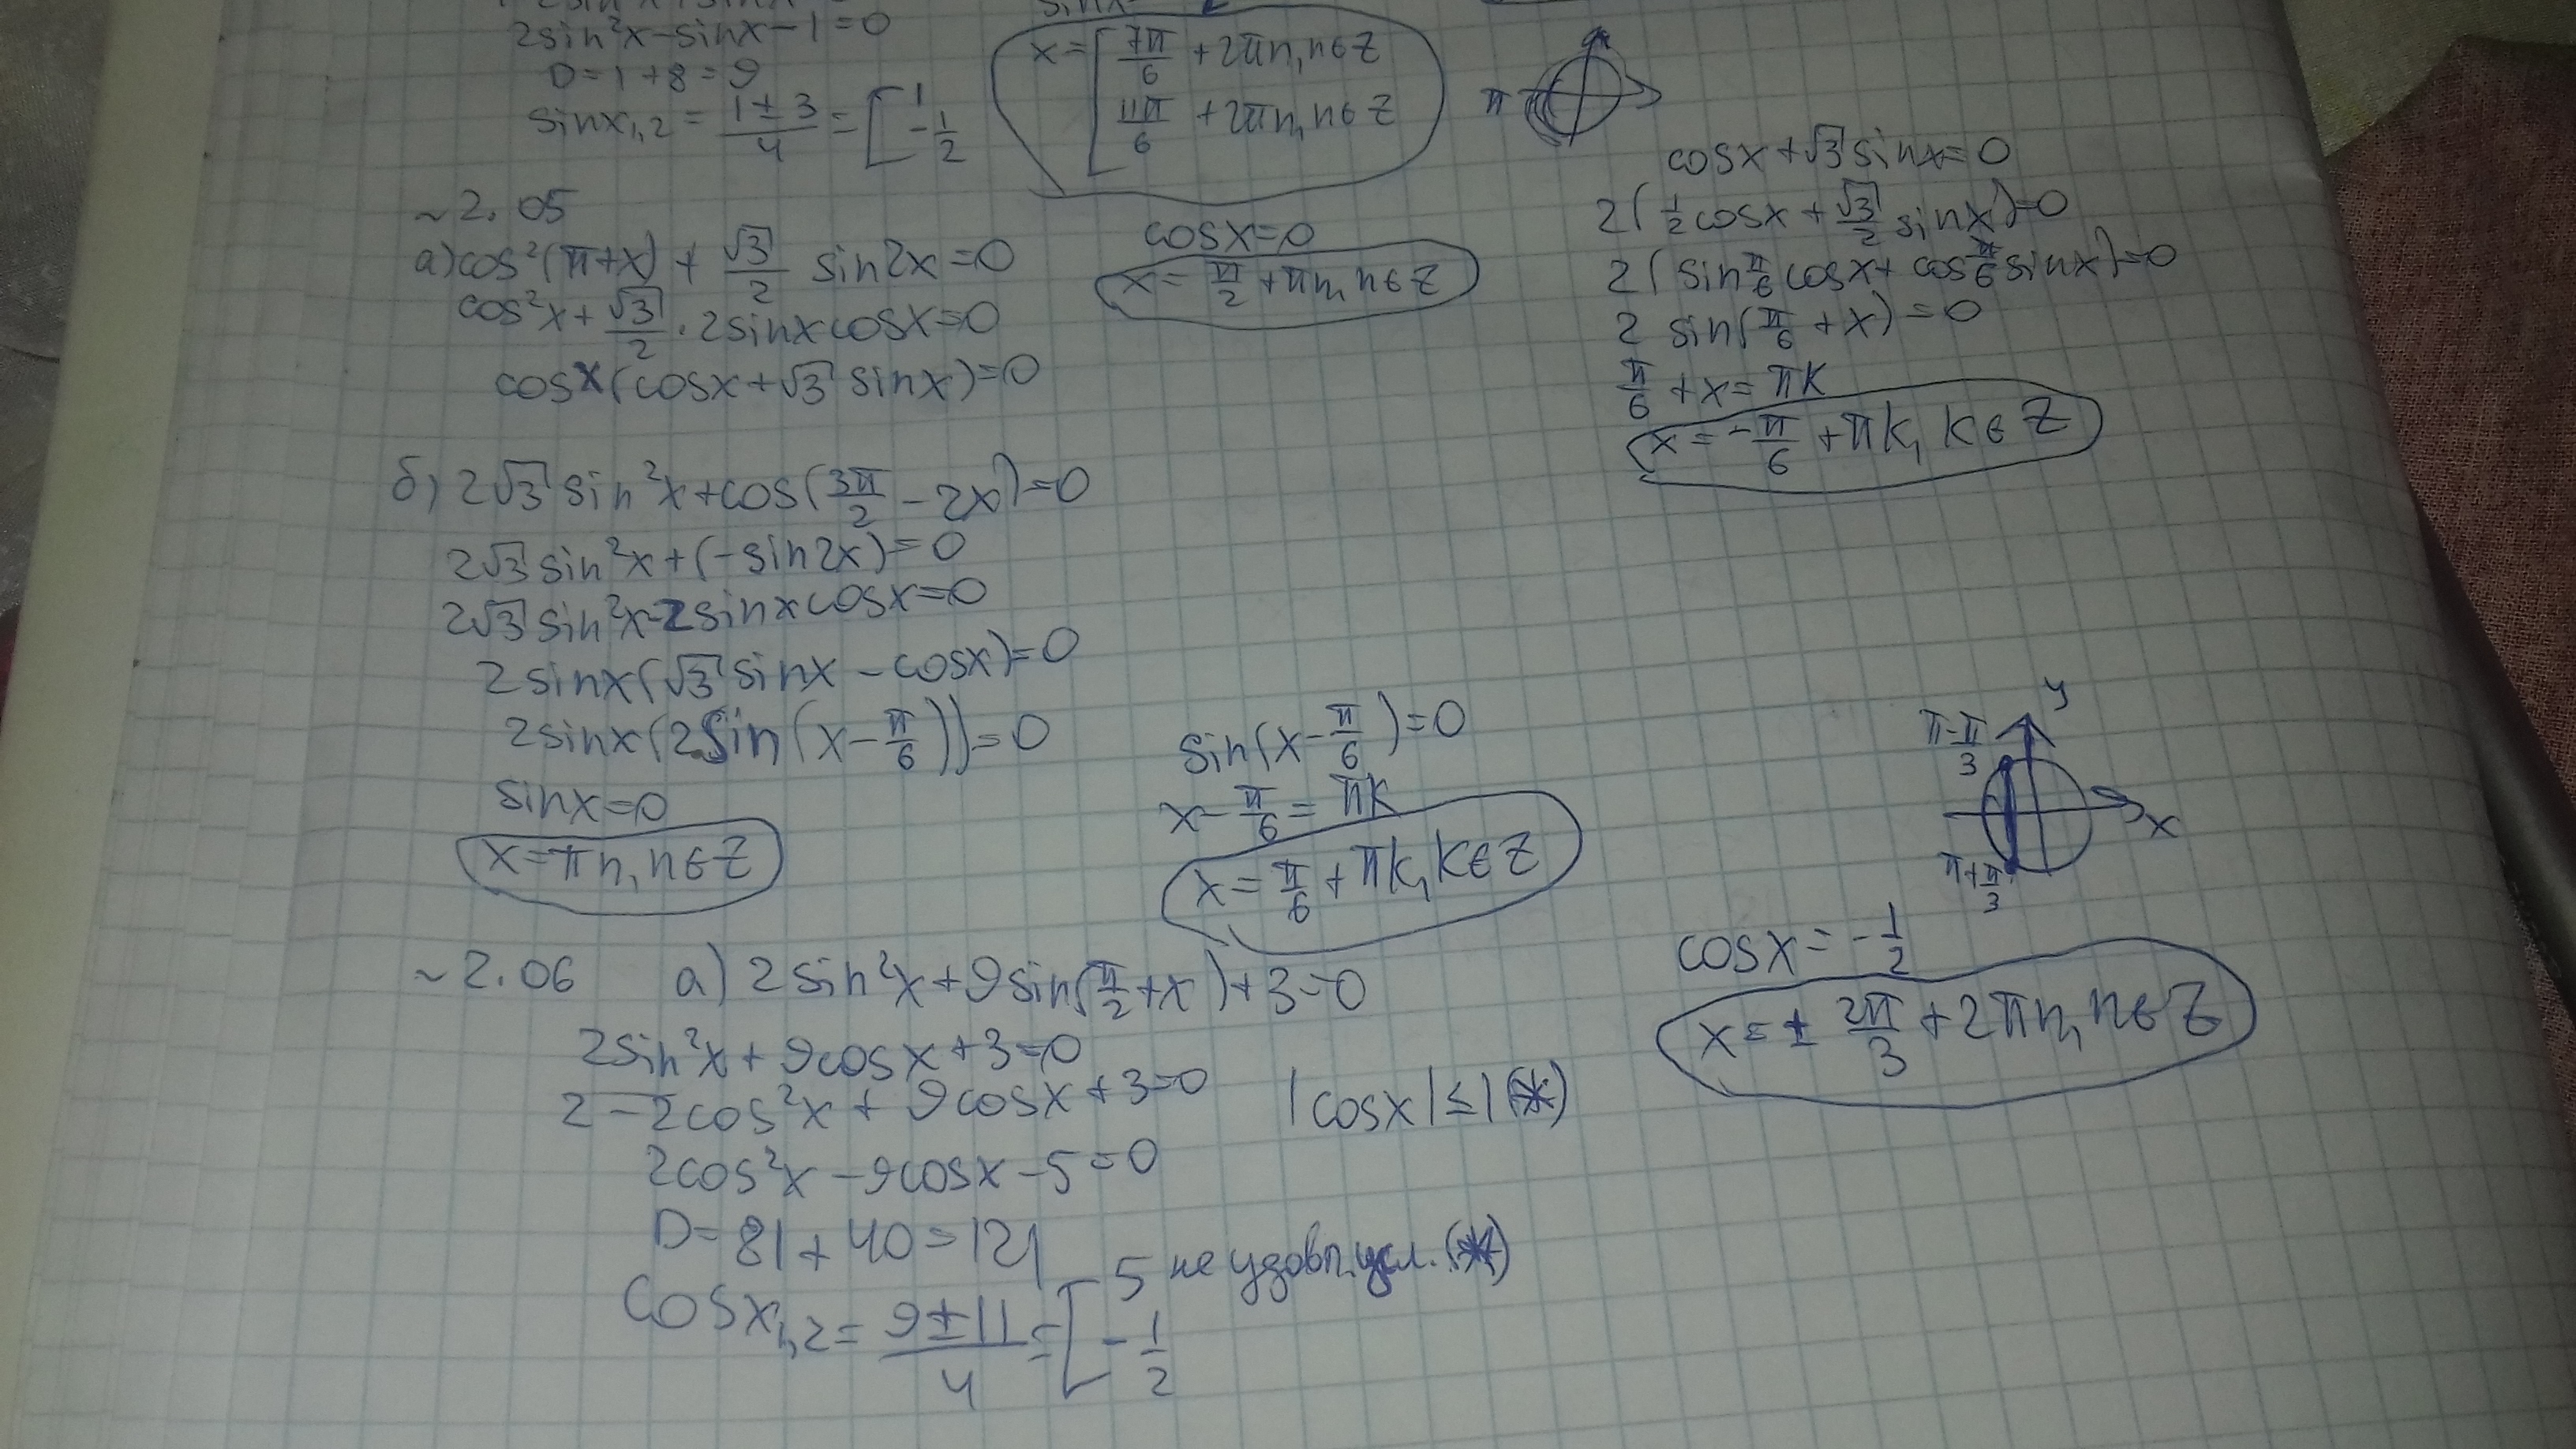 2sin²x-sinx-1=0
D=1+8=9
sinx₁,₂ = (1±3)/4 = [1
-1/2
x= [7π/6 +2πn, n∈Z
11π/6 +2πn, n∈Z
π
~2.05
а) cos²(π+x) + √3/2 sin2x=0
cos²x+ √3/2 · 2sinxcosx=0
cosx(cosx+√3sinx)=0
cosx=0
x= π/2 +πn, n∈Z
cosx+√3sinx=0
2(1/2 cosx+ √3/2 sinx)=0
2(sin π/6 cosx+ cos π/6 sinx)=0
2 sin(π/6 +x)=0
π/6 +x=πk
x=-π/6 +πk, k∈Z
б) 2√3sin²x+cos(3π/2 -2x)=0
2√3sin²x+(-sin2x)=0
2√3sin²x-2sinxcosx=0
2sinx(√3sinx-cosx)=0
2sinx(2sin(x-π/6))=0
sinx=0
x=πn, n∈Z
sin(x-π/6)=0
x-π/6=πk
x=π/6+πk, k∈Z
~2.06 а) 2sin²x+9sin(π/2+x)+3=0
2sin²x+9cosx+3=0
2-2cos²x+9cosx+3=0
|cosx|≤1 (*)
2cos²x-9cosx-5=0
D=81+40=121
cosx₁,₂= (9±11)/4 = [5 не удовл. усл. (*)
-1/2
y
π-π/3
x
π+π/3
cosx=-1/2
x=± 2π/3 +2πn, n∈Z